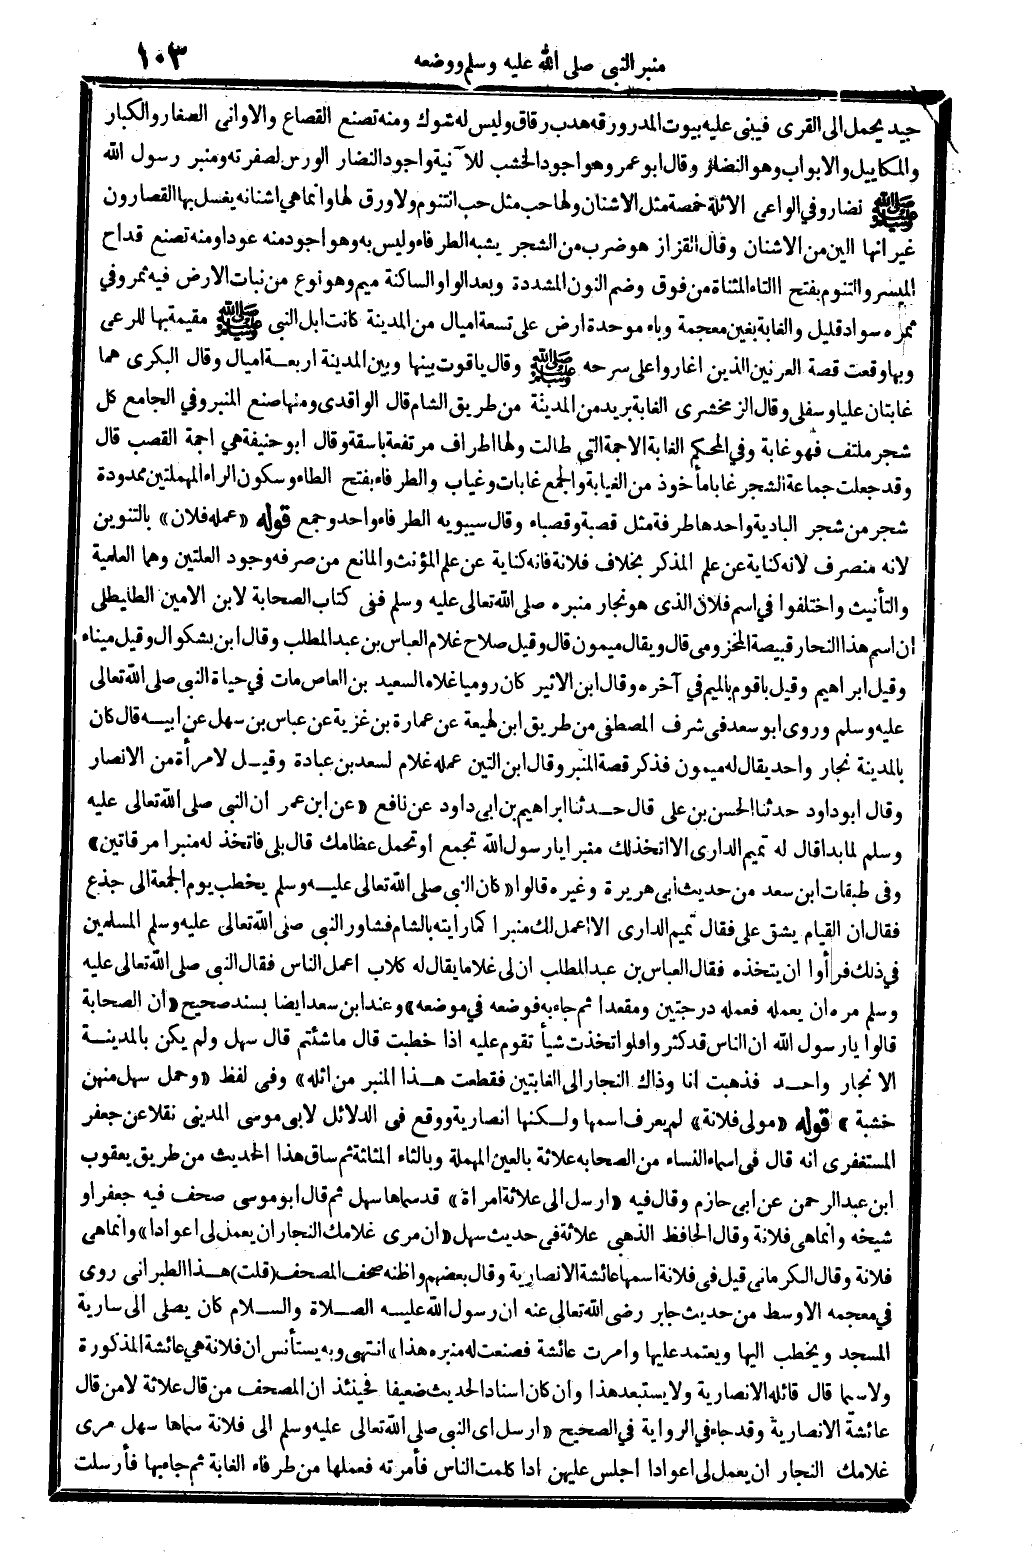 منبر النبى صلى الله عليه وسلم ووضعه
١٠٣
جيد يحمل الى القرى فيبنى عليه بيوت المدر ورقه هدب رقاق وليس له شوك ومنه تصنع القصاع والاوانى الصغار والكبار
والمكاييل والابواب وهو النضار وقال ابو عمر وهو اجود الخشب للآنية واجود النضار الورس لصفرته ومنبر رسول الله
ﷺ نضار وفي الواعى الاثلة خمصة مثل الاشنان ولها حب مثل حب التنوم ولا ورق لها وانما هي اشنانه يغسل بها القصارون
غير انها الين من الاشنان وقال القزاز هو ضرب من الشجر يشبه الطرفاء وليس به وهو اجود منه عودا ومنه تصنع قداح
الميسر والتنوم بفتح التاء المثناة من فوق وضم النون المشددة وبعد الواو الساكنة ميم وهو نوع من نبات الارض فيه ثمر وفي
ثمره سواد قليل والغابة بغين معجمة وباء موحدة ارض على تسعة اميال من المدينة كانت ابل النبى ﷺ مقيمة بها للرعى
وبها وقعت قصة العرنين الذين اغاروا على سرحه ﷺ وقال ياقوت بينها وبين المدينة اربعة اميال وقال البكرى هما
غابتان عليا وسفلى وقال الزمخشرى الغابة بريد من المدينة من طريق الشام قال الواقدى ومنها صنع المنبر وفي الجامع كل
شجر ملتف فهو غابة وفي المحكم الغابة الاجمة التي طالت ولها اطراف مرتفعة باسقة وقال ابو حنيفة هي اجمة القصب قال
وقد جعلت جماعة الشجر غابا مأخوذ من الغيابة والجمع غابات وغياب والطرفاء بفتح الطاء وسكون الراء المهملتين ممدودة
شجر من شجر البادية واحدها طرفة مثل قصبة وقصباء وقال سيبويه الطرفاء واحد وجمع قوله «عمله فلان» بالتنوين
لانه منصرف لانه كناية عن علم المذكر بخلاف فلانة فانه كناية عن علم المؤنث والمانع من صرفه وجود العلتين وهما العلمية
والتأنيث واختلفوا في اسم فلان الذى هو نجار منبره صلى الله تعالى عليه وسلم ففى كتاب الصحابة لابن الامين الطليطلى
ان اسم هذا النجار قبيصة المخزومى قال ويقال ميمون قال وقيل صلاح غلام العباس بن عبد المطلب وقال ابن بشكوال وقيل ميناء
وقيل ابراهيم وقيل باقوم بالميم في آخره وقال ابن الاثير كان روميا غلاما لسعيد بن العاص مات في حياة النبى صلى الله تعالى
عليه وسلم وروى ابو سعد فى شرف المصطفى من طريق ابن لهيعة عن عمارة بن غزية عن عباس بن سهل عن ابيه قال كان
بالمدينة نجار واحد يقال له ميمون فذكر قصة المنبر وقال ابن التين عمله غلام لسعد بن عبادة وقيل لامرأة من الانصار
وقال ابو داود حدثنا الحسن بن على قال حدثنا ابراهيم بن ابى داود عن نافع «عن ابن عمر ان النبى صلى الله تعالى عليه
وسلم لما بدا قال له تميم الدارى الا اتخذ لك منبرا يا رسول الله تجمع او تحمل عظامك قال بلى فاتخذ له منبرا مرقاتين»
وفى طبقات ابن سعد من حديث أبى هريرة وغيره قالوا «كان النبى صلى الله تعالى عليه وسلم يخطب يوم الجمعة الى جذع
فقال ان القيام يشق على فقال تميم الدارى الا اعمل لك منبرا كما رايته بالشام فشاور النبى صلى الله تعالى عليه وسلم المسلمين
في ذلك فرأوا ان يتخذه فقال العباس بن عبد المطلب ان لى غلاما يقال له كلاب اعمل الناس فقال النبى صلى الله تعالى عليه
وسلم مره ان يعمله فعمله درجتين ومقعدا ثم جاء به فوضعه في موضعه» وعند ابن سعد ايضا بسند صحيح «ان الصحابة
قالوا يا رسول الله ان الناس قد كثروا فلو اتخذت شيأ تقوم عليه اذا خطبت قال ما شئتم قال سهل ولم يكن بالمدينة
الا نجار واحد فذهبت انا وذاك النجار الى الغابتين فقطعت هذا المنبر من اثله» وفى لفظ «وحمل سهل منهن
خشبة» قوله «مولى فلانة» لم يعرف اسمها ولكنها انصارية ووقع فى الدلائل لابى موسى المدينى نقلا عن جعفر
المستغفرى انه قال فى اسماء النساء من الصحابه علاثة بالعين المهملة وبالثاء المثلثة ثم ساق هذا الحديث من طريق يعقوب
ابن عبد الرحمن عن ابى حازم وقال فيه «ارسل الى علاثة امراة» قد سماها سهل ثم قال ابو موسى صحف فيه جعفر او
شيخه وانما هى فلانة وقال الحافظ الذهبى علاثة فى حديث سهل «ان مرى غلامك النجار ان يعمل لى اعوادا» وانما هى
فلانة وقال الكرمانى قيل فى فلانة اسمها عائشة الانصارية وقال بعضهم واظنه صحف المصحف (قلت) هذا الطبرانى روى
في معجمه الاوسط من حديث جابر رضى الله تعالى عنه ان رسول الله عليه الصلاة والسلام كان يصلى الى سارية
المسجد ويخطب اليها ويعتمد عليها وامرت عائشة فصنعت له منبره هذا» انتهى وبه يستأنس ان فلانة هي عائشة المذكورة
ولا سيما قال قائله الانصارية ولا يستبعد هذا وان كان اسناد الحديث ضعيفا فحينئذ ان المصحف من قال علاثة لا من قال
عائشة الانصارية وقد جاء في الرواية في الصحيح «ارسل اى النبى صلى الله تعالى عليه وسلم الى فلانة سماها سهل مرى
غلامك النجار ان يعمل لى اعوادا اجلس عليهن اذا كلمت الناس فأمرته فعملها من طرفاء الغابة ثم جاء بها فأرسلت